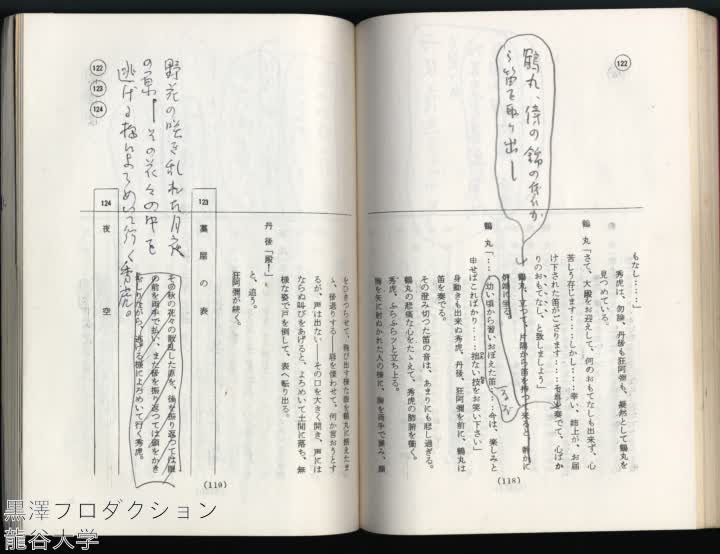 122
鶴丸、傍の錦の袋か
ら笛を取り出し
もなし……」
秀虎は、勿論、丹後も狂阿彌も、凝然として鶴丸を
見つめている。
鶴丸「さて、大殿をお迎えして、何のおもてなしも出来ず、心
苦しう存じます……しかし……幸い、姉上が、お届
け下された笛がござります……を奏でて、心ばか
りのおもてなし、と致しましょう」
鶴丸、立つて、片隅から笛を持つて来ると、静かに
鶴丸「……幼い頃から習いおぼえた笛……今は、楽しみと
申せばこればかり……拙ない技をお笑い下さい」
身動きも出来ぬ秀虎、丹後、狂阿彌を前に、鶴丸は
笛を奏でる。
その澄み切つた笛の音は、あまりにも悲し過ぎる。
鶴丸の悲痛な心をたゝえて、秀虎の肺腑を衝く。
秀虎、ふらふらッと立ち上る。
胸を矢に射ぬかれた人の様に、胸を両手で掴み、顔
(118)
をひきつらせて、飛び出す様な眼を鶴丸に据えたま
ゝ、後退りする――唇を慄わせて、何か言おうとす
るが、声は出ない――その口を大きく開き、声には
ならぬ叫びをあげると、よろめいて土間に落ち、無
様な姿で戸を倒して、表へ転り出る。
丹後「殿!」
と、追う。
狂阿彌が続く。
123
藁屋の表
その秋の花々の散乱した庭を、後を振り返つては眼
の前を両手で払い、また後を振り返つては顔をかき
むしりながら、逃げる様によろめいて行く秀虎。
124
夜空
(119)
野花の咲き乱れた月夜
の原――その花々の中を
逃げる様によろめいて行く秀虎。
122
123
124
黒澤プロダクション
龍谷大学